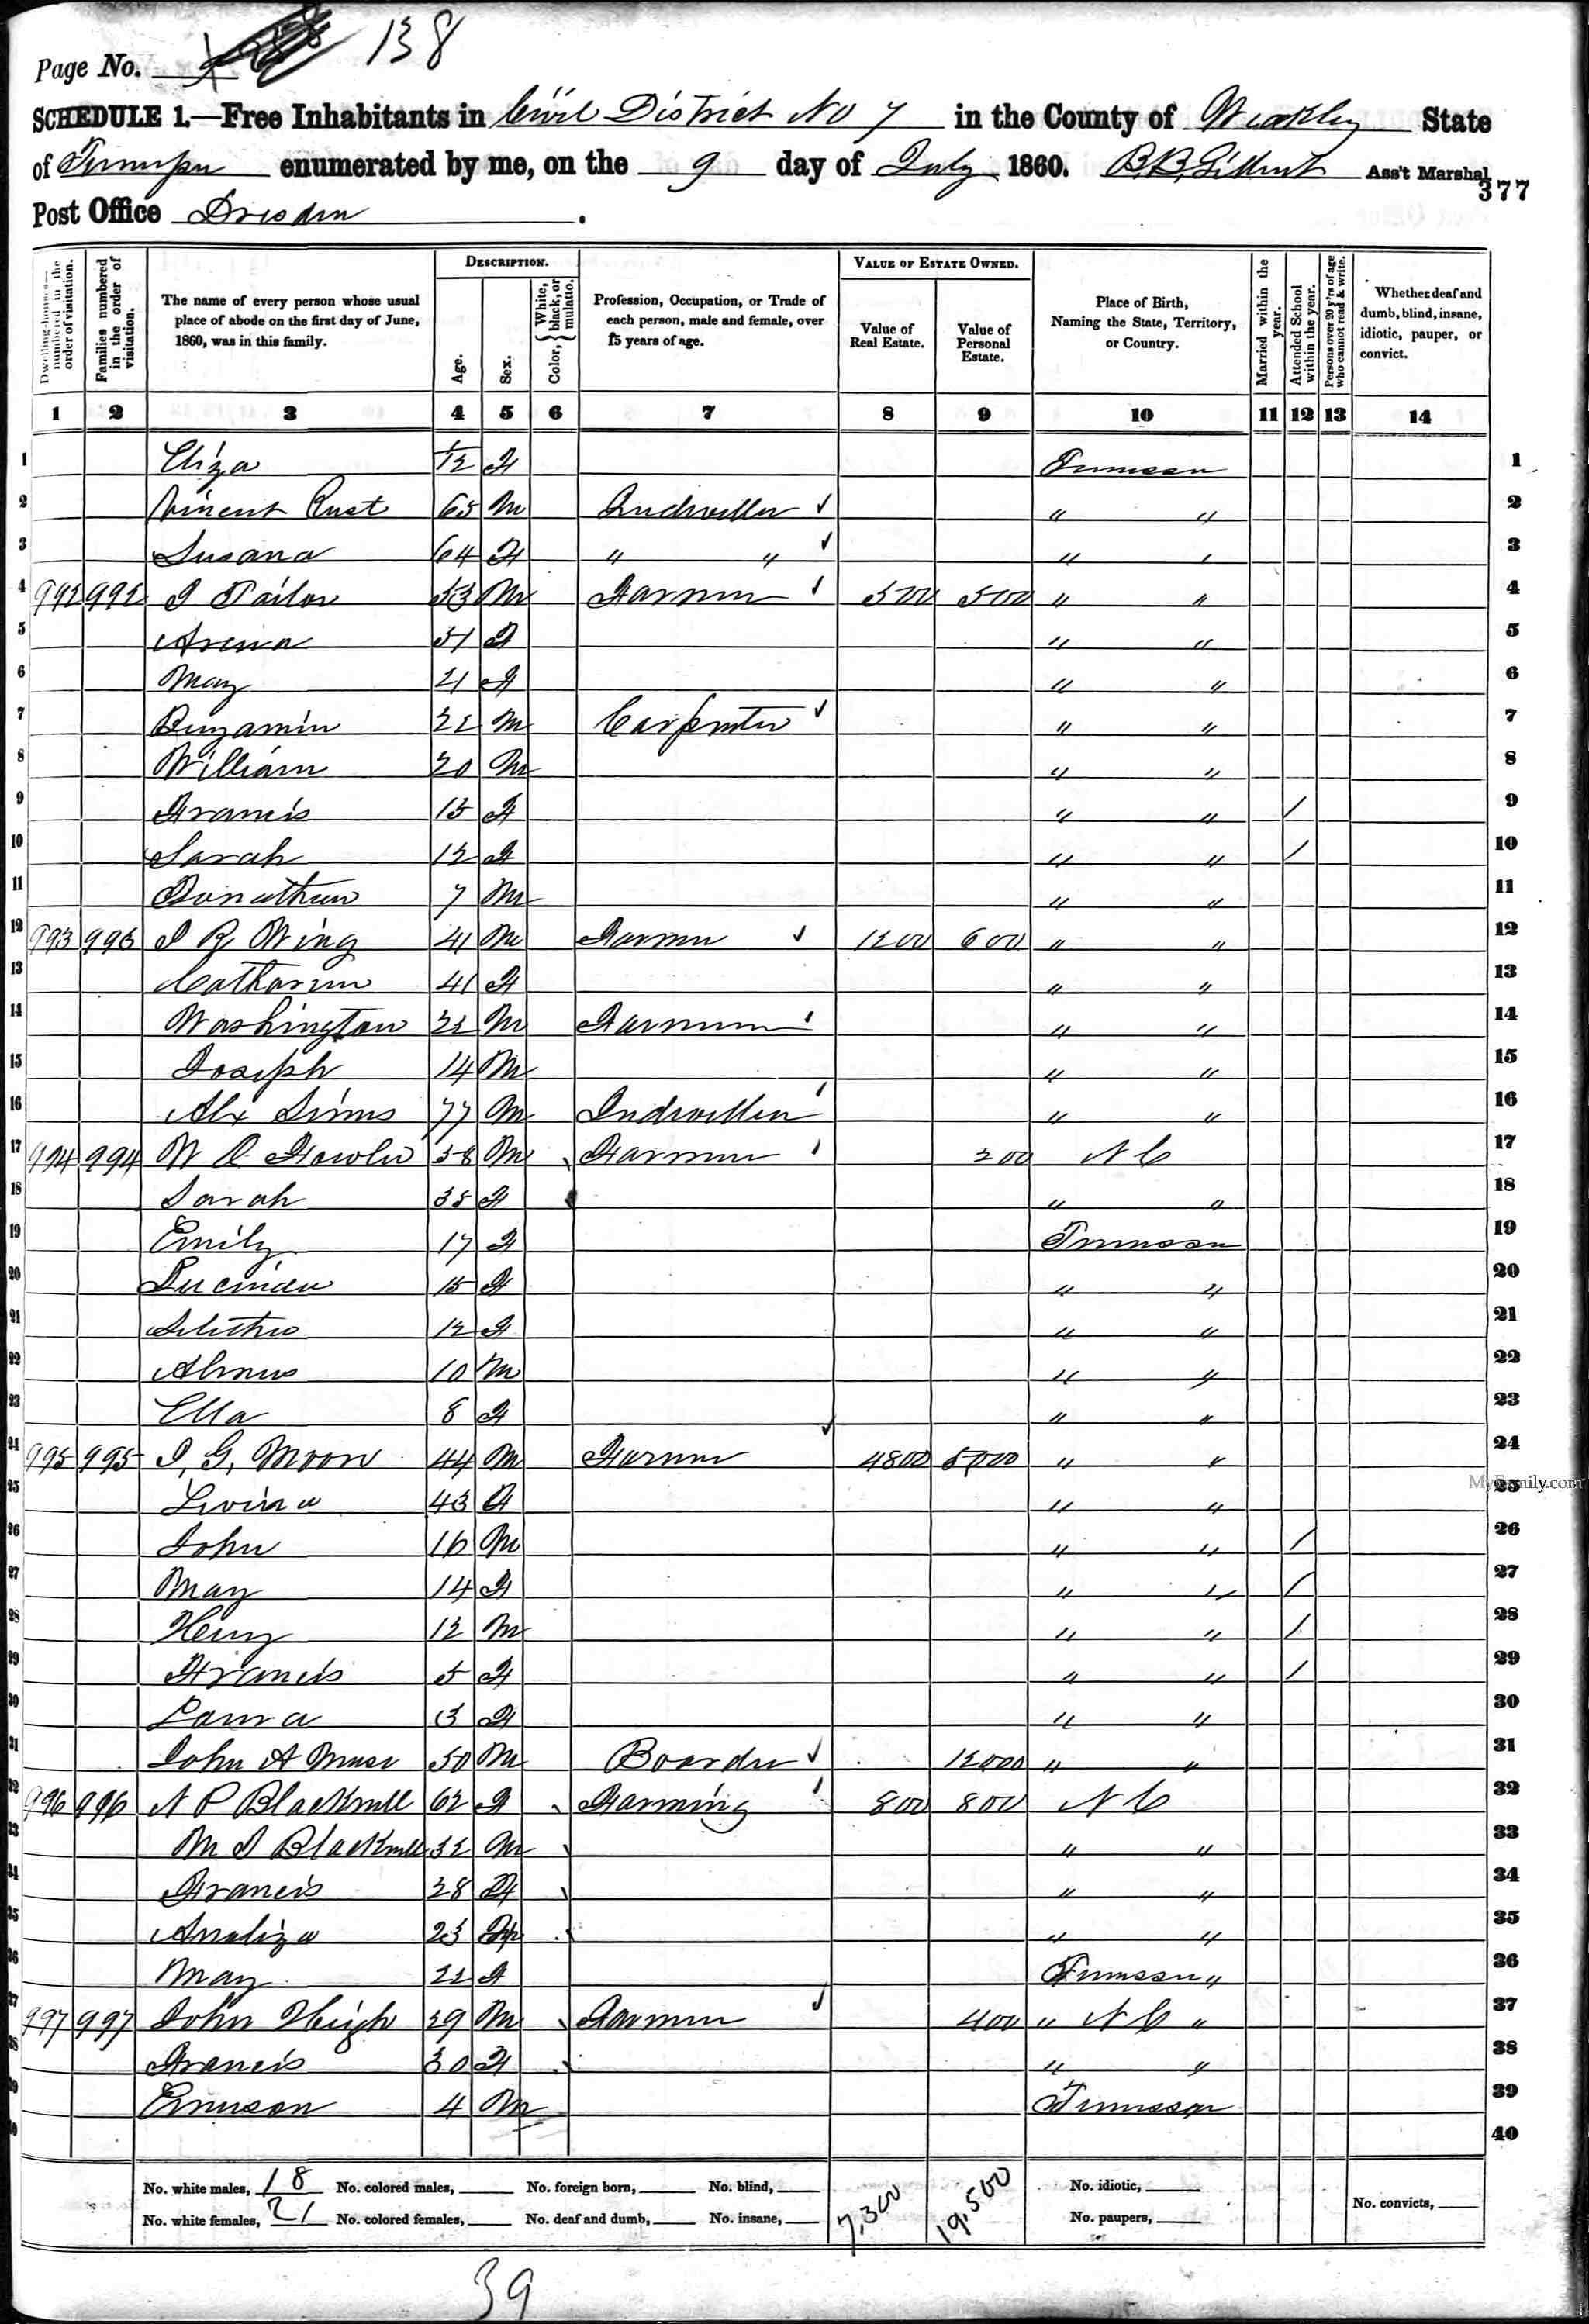 Page No. 138
SCHEDULE 1.—Free Inhabitants in Civil District No 7 in the County of Weakley State
of Tennessee enumerated by me, on the 9 day of July 1860. Ass't Marshal
377
Post Office Dresden.
Dwelling-houses—numbered in the order of visitation.
Families numbered in the order of visitation.
The name of every person whose usual place of abode on the first day of June, 1860, was in this family.
DESCRIPTION.
Age.
Sex.
Color, { White, black, or mulatto.
Profession, Occupation, or Trade of each person, male and female, over 15 years of age.
VALUE OF ESTATE OWNED.
Value of Real Estate.
Value of Personal Estate.
Place of Birth, Naming the State, Territory, or Country.
Married within the year.
Attended School within the year.
Persons over 20 y'rs of age who cannot read & write.
Whether deaf and dumb, blind, insane, idiotic, pauper, or convict.
1 2 3 4 5 6 7 8 9 10 11 12 13 14
1 Eliza 1/12 F Tennessee 1
2 Vincent Rust 65 M ✓ " " 2
3 Susana 64 F " " ✓ " " 3
4 992 992 J Tailor 53 M Farmer 500 500 " " 4
5 51 F " " 5
6 Mary 21 F " " 6
7 Benjamin 22 M Carpenter ✓ " " 7
8 William 20 M " " 8
9 Francis 15 F " " / 9
10 Sarah 12 F " " / 10
11 Jonathan 7 M " " 11
12 993 993 J R Wing 41 M Farmer ✓ 1200 600 " " 12
13 Catharine 41 F " " 13
14 Washington 22 M Farmer " " 14
15 Joseph 14 M " " 15
16 Alx Sims 77 M " " 16
17 994 994 W D Fowler 38 M Farmer 200 N C 17
18 Sarah 35 F " " 18
19 Emily 17 F Tennessee 19
20 Lucinda 15 F " " 20
21 12 F " " 21
22 10 M " " 22
23 Ella 8 F " " 23
24 995 995 J. G. Moore 44 M Farmer ✓ 4800 5000 " " 24
25 Levina 43 F " " 25
26 John 16 M " " / 26
27 Mary 14 F " " / 27
28 Henry 12 M " " / 28
29 Francis 5 F " " / 29
30 Laura 3 F " " 30
31 John A Muse 50 M Boarder ✓ 12000 " " 31
32 996 996 N P Blackmell 62 F Farming 800 800 N C 32
33 M J Blackmell 32 M " " 33
34 Francis 28 F " " 34
35 Analiza 23 F " " 35
36 Mary 22 F Tennessee " 36
37 997 997 John High 29 M Farmer ✓ 400 " N C " 37
38 Francis 30 F " " 38
39 Emerson 4 M Tennessee 39
40 40
No. white males, 18 No. colored males, No. foreign born, No. blind, 7,300 19,500 No. idiotic,
No. white females, 21 No. colored females, No. deaf and dumb, No. insane, No. paupers, No. convicts,
39
MyFamily.com